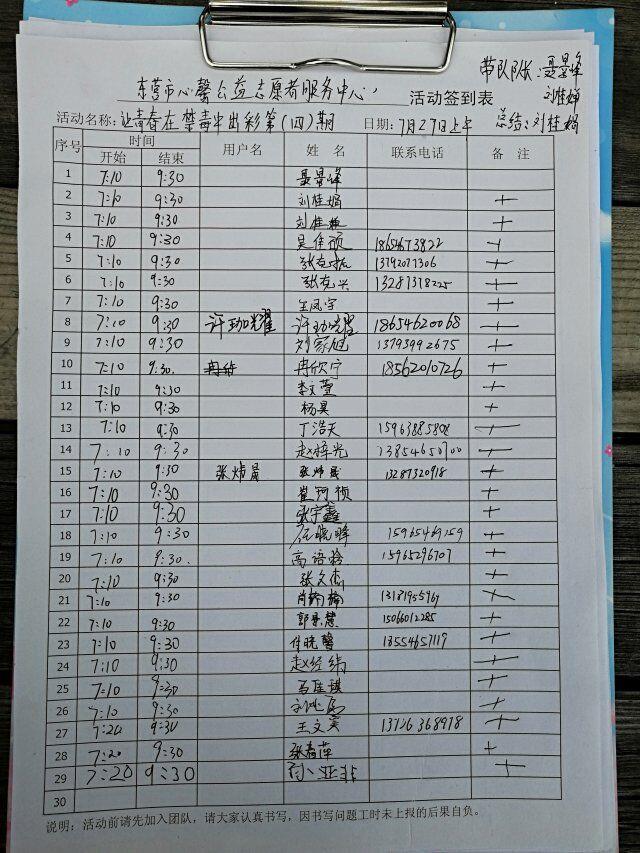 东营市心馨公益志愿者服务中心 活动签到表
带队队长:聂景峰
刘桂娟
总结:刘桂娟
活动名称:让青春在禁毒中出彩第(四)期 日期:7月27日上午
序号 时间 用户名 姓名 联系电话 备注
开始 结束
1 7:10 9:30 聂景峰
2 7:10 9:30 刘桂娟 +
3 7:10 9:30 刘桂 +
4 7:10 9:30 吴佳硕 18654673822 +
5 7:10 9:30 张克 13792077306 +
6 7:10 9:30 张克兴 13287378225 +
7 7:10 9:30 王凤宇 +
8 7:10 9:30 许珈耀 许珈耀 18654620068 +
9 7:10 9:30 刘家旭 13793992675 +
10 7:10 9:30. 冉欣宁 18562010726 +
11 7:10 9:30 李文萱 +
12 7:10 9:30 杨昊 +
13 7:10 9:30 丁浩天 15963885808 +
14 7:10 9:30 赵梓光 13854650900 +
15 7:10 9:30 张炜晨 张炜晨 13287320918 +
16 7:10 9:30 崔珂祯 +
17 7:10 9:30 张宇鑫 +
18 7:10 9:30 任晓晖 15965469159 +
19 7:10 9:30. 高语 15965296707 +
20 7:10 9:30 张文杰 +
21 7:10 9:30 肖 13181955969 +
22 7:10 9:30 郭慧 15066012285 +
23 7:10 9:30 任晓馨 18554657119 +
24 7:10 9:30 赵经纬 +
25 7:10 9:30 +
26 7:10 9:30 +
27 7:20 9:30 王文英 13726368978 +
28 7:20 9:30 张春萍 +
29 7:20 9:30 孙亚非 +
30
说明:活动前请先加入团队,请大家认真书写,因书写问题工时未上报的后果自负。